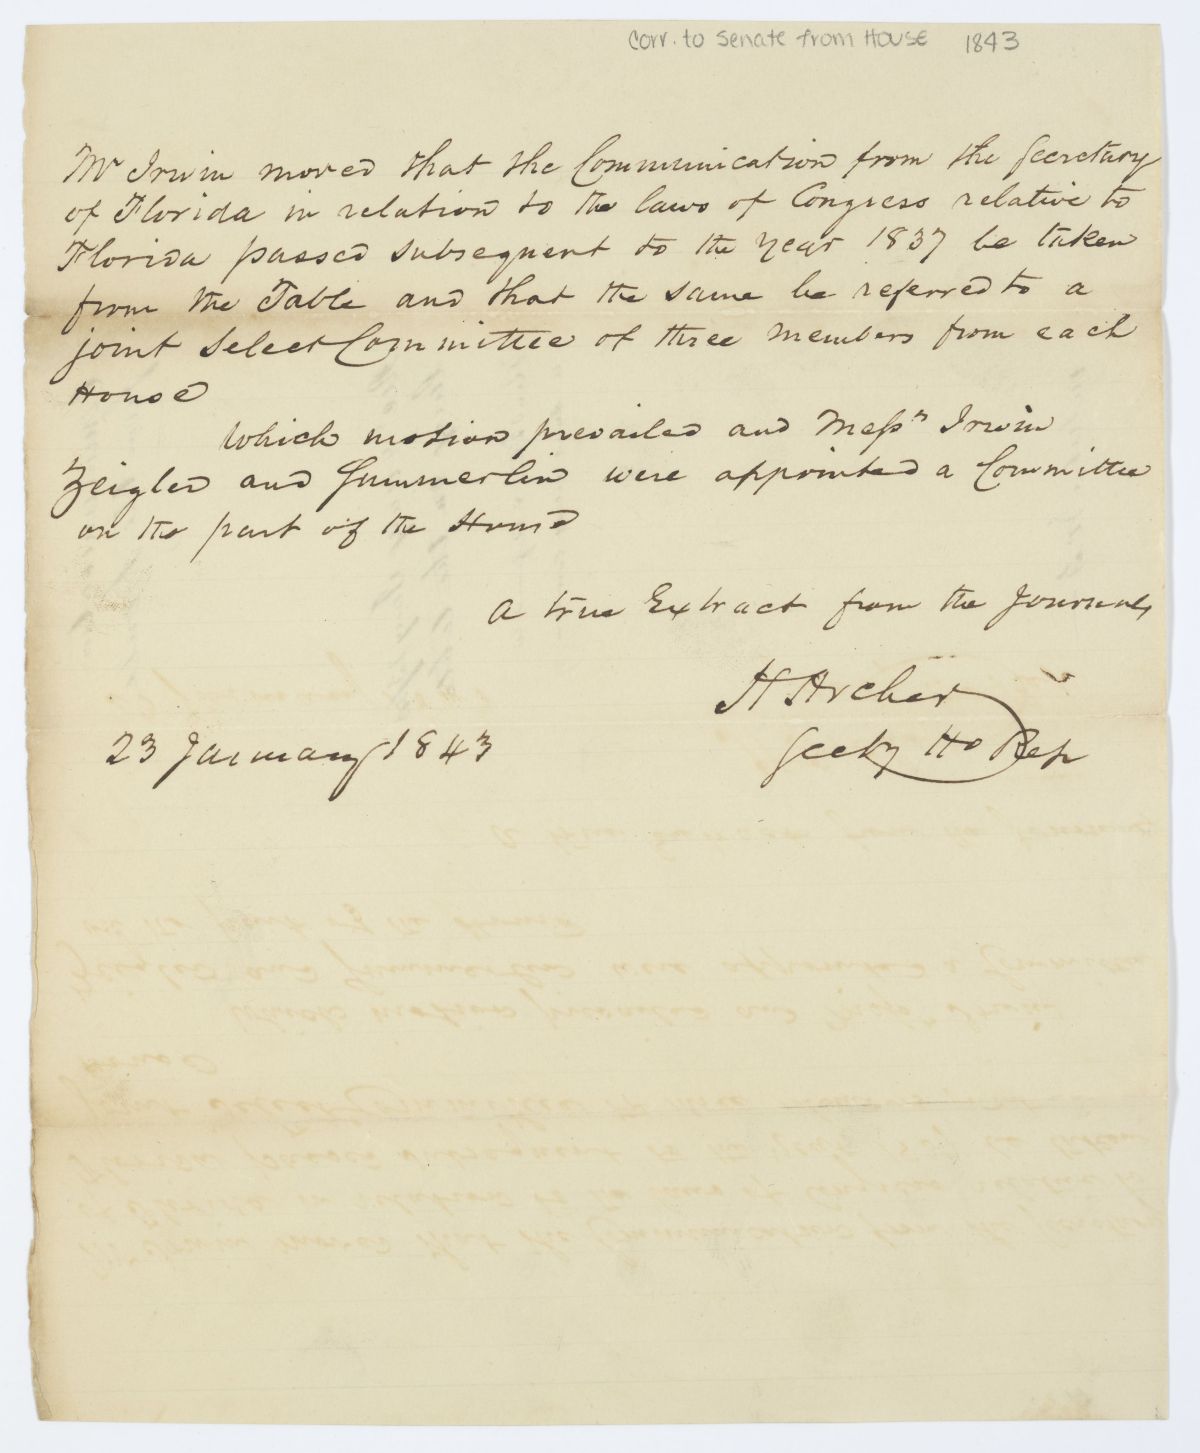 Corr. to Senate from House 1843
Mr Irwin moved that the Communication from the Secretary
of Florida in relation to the laws of Congress relative to
Florida passed subsequent to the year 1837 be taken
from the Table and that the same be referred to a
joint select Committee of three members from each
House
Which motion prevailed and Messrs Irwin
Zeigler and Summerlin were appointed a Committee
on the part of the House
A true Extract from the Journals
H Archer
Secty Ho Rep
23 January 1843